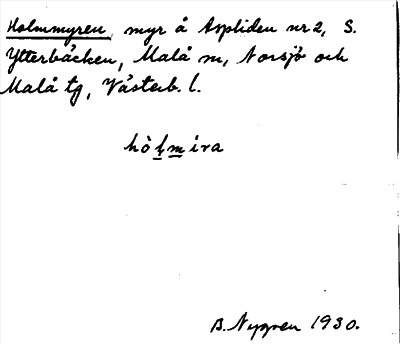 Holmmyren, myr å Aspliden nr 2, S.
Ytterbäcken, Malå m, Norsjö och
Malå tg, Västerb. l.
hòlmira
B. Nygren 1930.